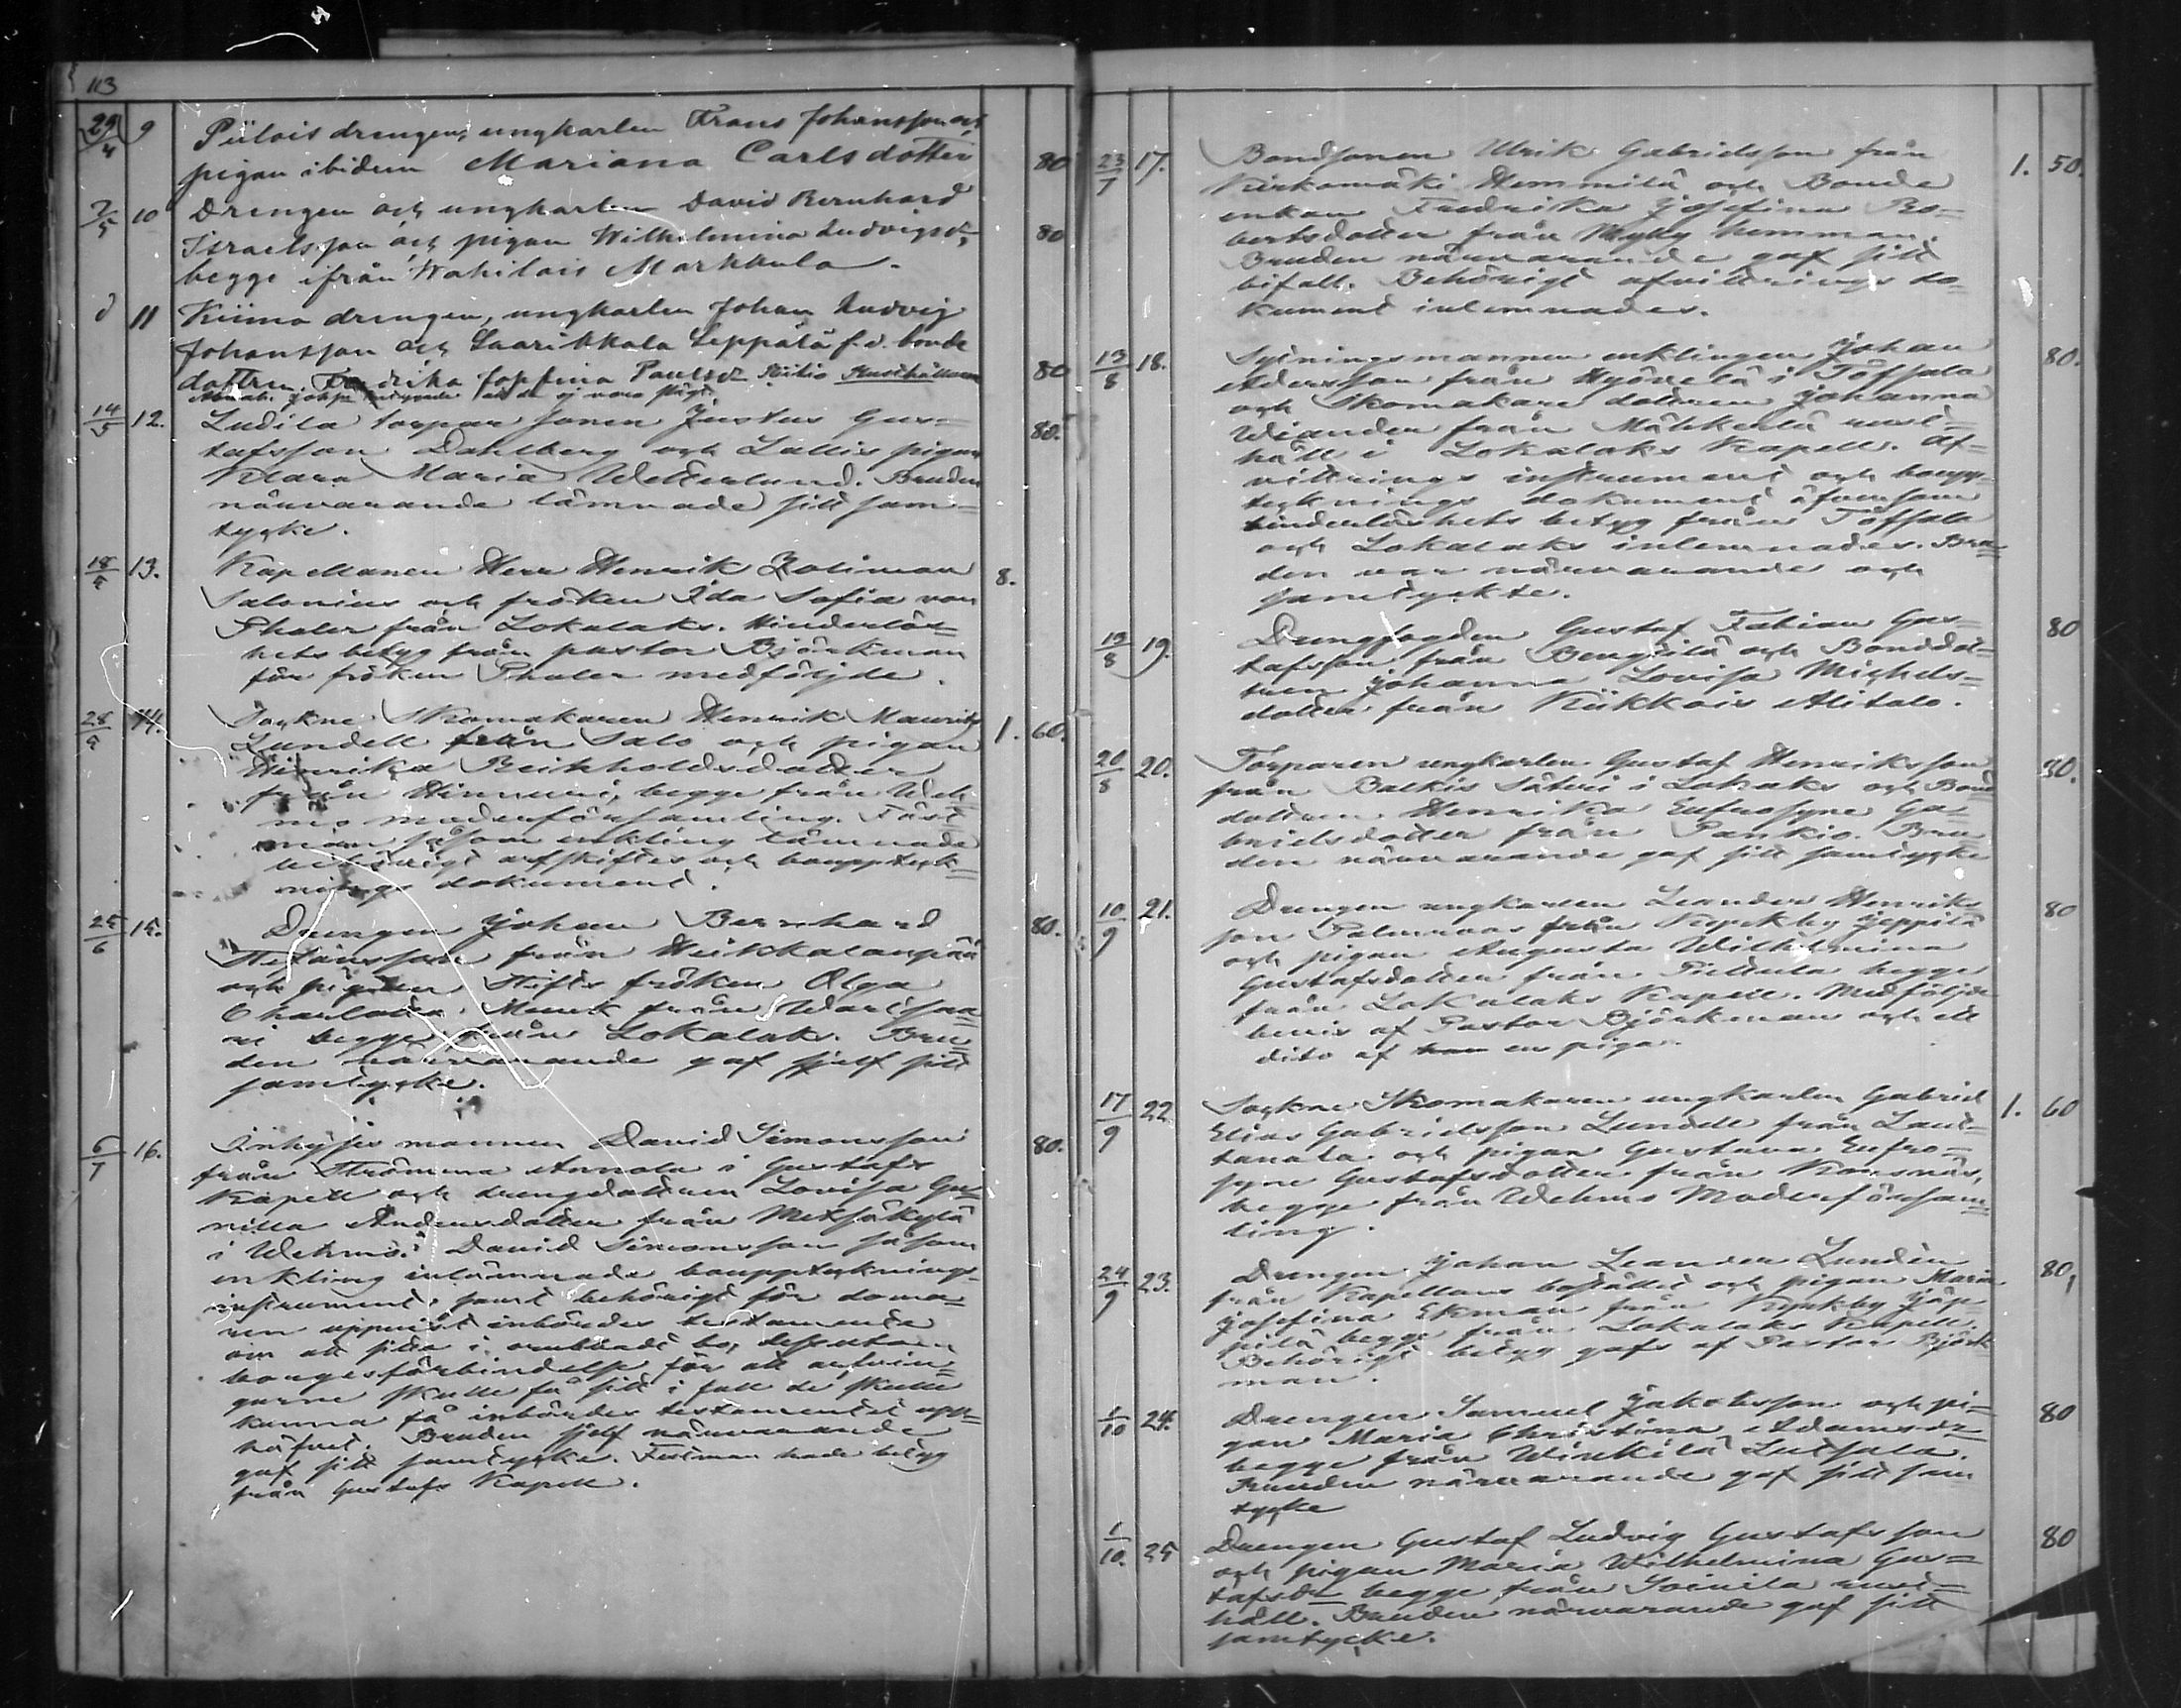 113
29/4 9 Piilois drengen, ungkarlen Frans Johansson och
pigan ibidem Mariana Carlsdotter 80
7/5 10 Drengen och ungkarlen David Bernhard
Israelsson och pigan Wilhelmina Ludvigsdr 80
begge ifrån Wahilais Markkula.
d 11 Kiima drengen, ungkarlen Johan Ludvig
Johansson och Saarikkala Seppälä f.d. bonde
dottren Fredrika Josefina Paulsdr 80
14/5 12. Ludila torpare sonen Justus Gus=
tafsson Dahlberg och Lallis pigan 80.
Klara Maria Wetterlund. Bruden
närvarande lämnade sitt sam=
tycke.
18/5 13. Kapellanen Herr Henrik Roliman 8.
Salonius och fröken Ida Sofia von
Phaler från Lokalaks. Hinderlös=
hets betyg från pastor Björkman
för fröken Phaler medföljde.
28/5 14. Sockne Skomakaren Henrik Maurits
Lundell från Salo och pigan 1. 60.
Henrika Reinholdsdotter
från Hinnuri, begge från Weh=
mo moderförsamling. Fäst=
man såsom enkling lämnade
behörigt afskiftes och bouppteck=
nings dokument.
25/6 15. Drengen Johan Bernhard 80.
Stefansson från Heikkalanpää
och pigan Stifts fröken Olga
Charlotta Munck från Warisaa=
ri begge från Lokalaks. Bru=
den närvarande gaf sjelf sitt
samtycke.
6/7 16. Inhyses mannen David Simonsson 80.
från Strömma Annola i Gustafs
Kapell och drengdottren Lovisa Gu=
nilla Andersdotter från Metsäkylä
i Wehmo. David Simonsson såsom
enkling inlämnade bouppteknings=
instrument samt behörigt för doma=
ren uppvist inbördes testamente
om att sitta i orubbadt bo, dessutom
borgesförbindelse för att arfvin=
garne skulle få sitt i fall de skulle
kunna få inbördes testamentet upp=
häfvet. Bruden sjelf närvarande
gaf sitt samtycke. Festman hade betyg
från Gustafs Kapell.
23/7 17. Bondsonen Ulrik Gabrielsson från 1. 50.
Kirkomäki Hemmilä och Bonde
enkan Fredrika Josefina Ro=
bertsdotter från Myky hemman.
Bruden närvarande gaf sitt
bifall. Behörigt afvittrings do=
kument inlemnades.
13/8 18. Syningsmannen enklingen Johan 80.
Andersson från Hyövelä i Töfsala
och Skomakare dottren Johanna
Wiander från Mäkkelä rust=
håll i Lokalaks Kapell. Af=
vittrings instrument och boupp=
teknings dokument äfvensom
hinderlöshets betyg från Töfsala
och Lokalaks inlemnades. Bru=
den var närvarande och
samtyckte.
13/8 19. Drengfogden Gustaf Fabian Gus= 80
tafsson från Bengtilä och Bonddot=
tren Johanna Lovisa Michels=
dotter från Kiikkois Alitalo.
20/8 20. Torparen ungkarlen Gustaf Henriksson 30.
från Balkis Säteri i Lokalaks och Bond
dottren Henrika Eufrosyne Ga=
brielsdotter från Pankio. Bru=
den närvarande gaf sitt samtycke
10/9 21. Drengen ungkarlen Leander Henriks 80
son Palmroos från Kyrkby Jeppilä
och pigan Augusta Wilhelmina
Gustafsdotter från Pietula begge
från Lokalaks Kapell. Medföljde
bevis af Pastor Björkman och ett
dito af en piga.
17/9 22 Sockne Skomakaren ungkarlen Gabriel 1. 60
Elias Gabrielsson Lundell från Laut=
tanala och pigan Gustava Eufro=
syne Gustafsdotter från Korsnäs,
begge från Wehmo Moderförsam=
ling.
24/9 23. Drengen Johan Leander Lundén 80,
från Kapellans bostället och pigan Maria
Josefina Ekman från Kyrkby Jäp=
pilä begge från Lokalaks Kapell.
Behörigt betyg gafs af Pastor Björk=
man.
1/10 24. Drengen Samuel Jakobsson och pi= 80
gan Maria Christina Adamsdr
begge från Winkilä Lutsala.
Bruden närvarande gaf sitt sam
tycke
1/10. 25 Drengen Gustaf Ludvig Gustafsson 80
och pigan Maria Wilhelmina Gus=
tafsdr begge från Soinila rust=
håll. Bruden närvarande gaf sitt
samtycke.